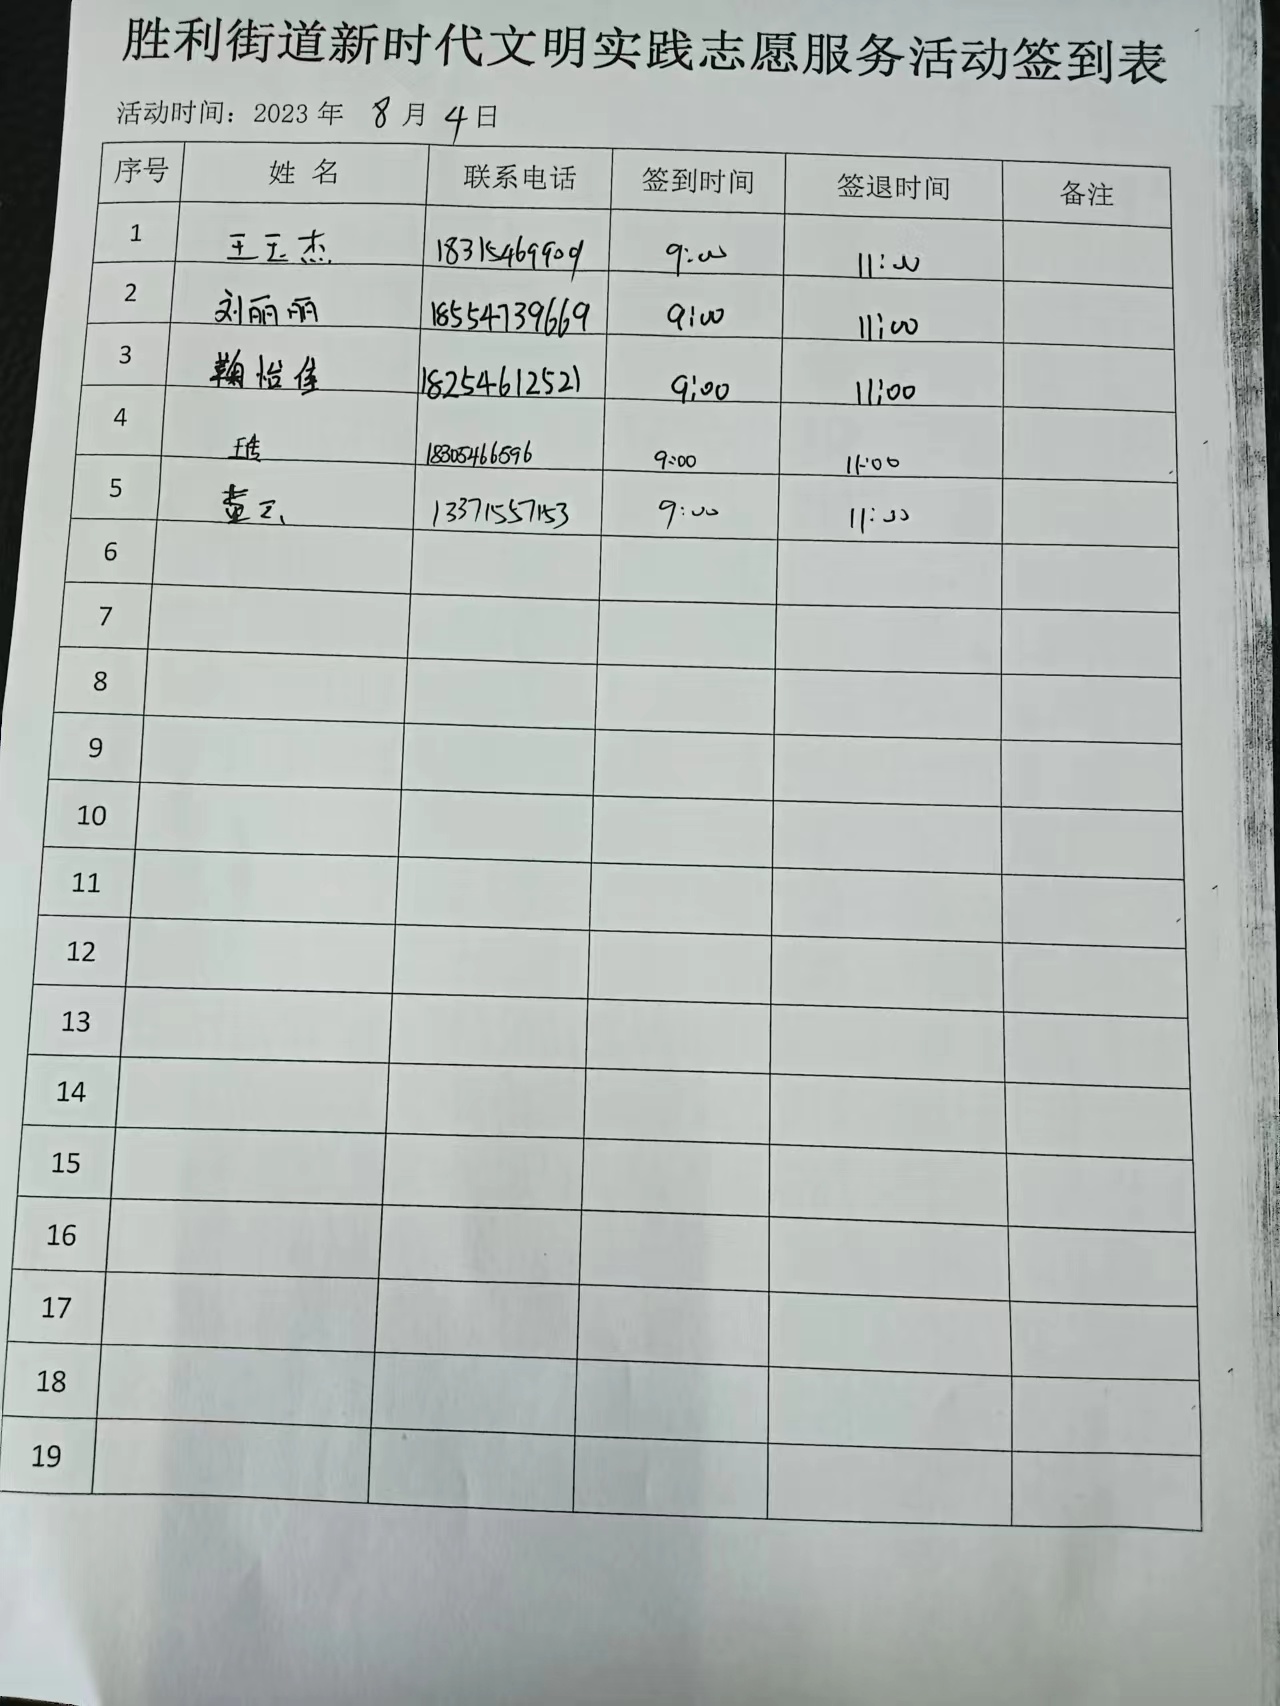 胜利街道新时代文明实践志愿服务活动签到表
活动时间：2023 年 8 月 4 日
序号 姓 名 联系电话 签到时间 签退时间 备注
1 王玉杰 18315469909 9:00 11:00
2 刘丽丽 18554739669 9:00 11:00
3 鞠怡佳 18254612521 9:00 11:00
4 18305466596 9:00 11:00
5 13371557153 9:00 11:00
6
7
8
9
10
11
12
13
14
15
16
17
18
19